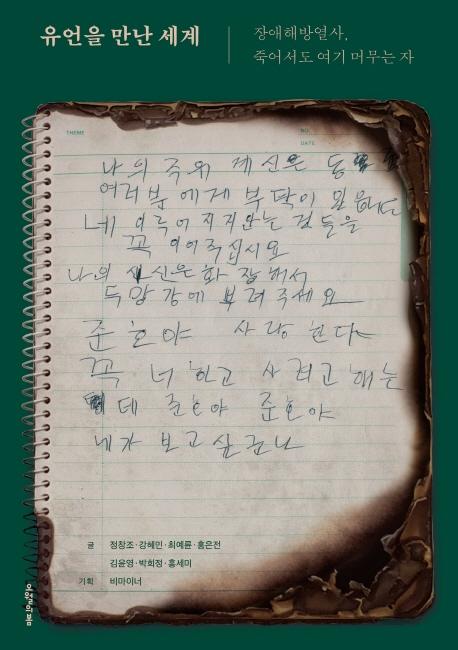 유언을 만난 세계
장애해방열사,
죽어서도 여기 머무는 자
THEME
NO.
DATE
나의 죽워 게신은 동
여러분에게 부탁이 있읍니다
네 이루어지지안는 것들을
꼭 이어주십시요
나의 시신은 화장해서
두망강에 뿌려주세요
준호야 사랑한다
꼭 너하고 사려고 해는
데 준호야 준호야
네가 보고싶군나
글 정창조·강혜민·최예륜·홍은전
김윤영·박희정·홍세미
기획 비마이너
오월의봄